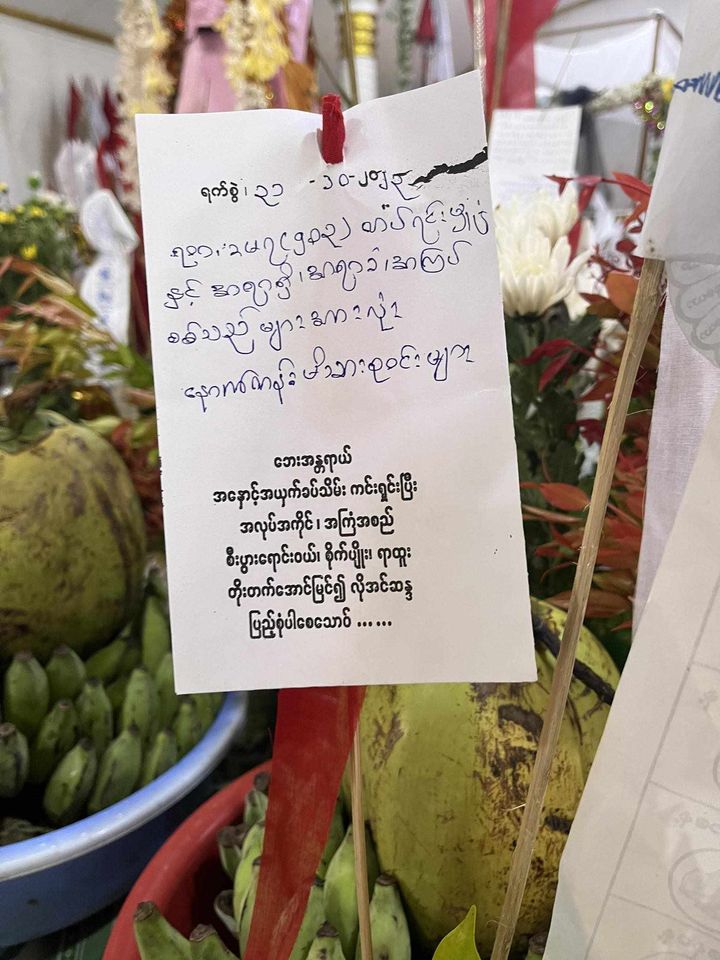 ရက်စွဲ၊ ၃၁ -၁၀-၂၀၂၃
တပ်ရင်းမှူး
နှင့် အရာရှိ၊ အရာခံ၊ အကြပ်
စစ်သည်များအားလုံး
နောက်တန်းမိသားစုဝင်များ
ဘေးအန္တရာယ်
အနှောင့်အယှက်ခပ်သိမ်း ကင်းရှင်းပြီး
အလုပ်အကိုင်၊ အကြံအစည်
စီးပွားရောင်းဝယ်၊ စိုက်ပျိုး၊ ရာထူး
တိုးတက်အောင်မြင်၍ လိုအင်ဆန္ဒ
ပြည့်စုံပါစေသောဝ် ... ...